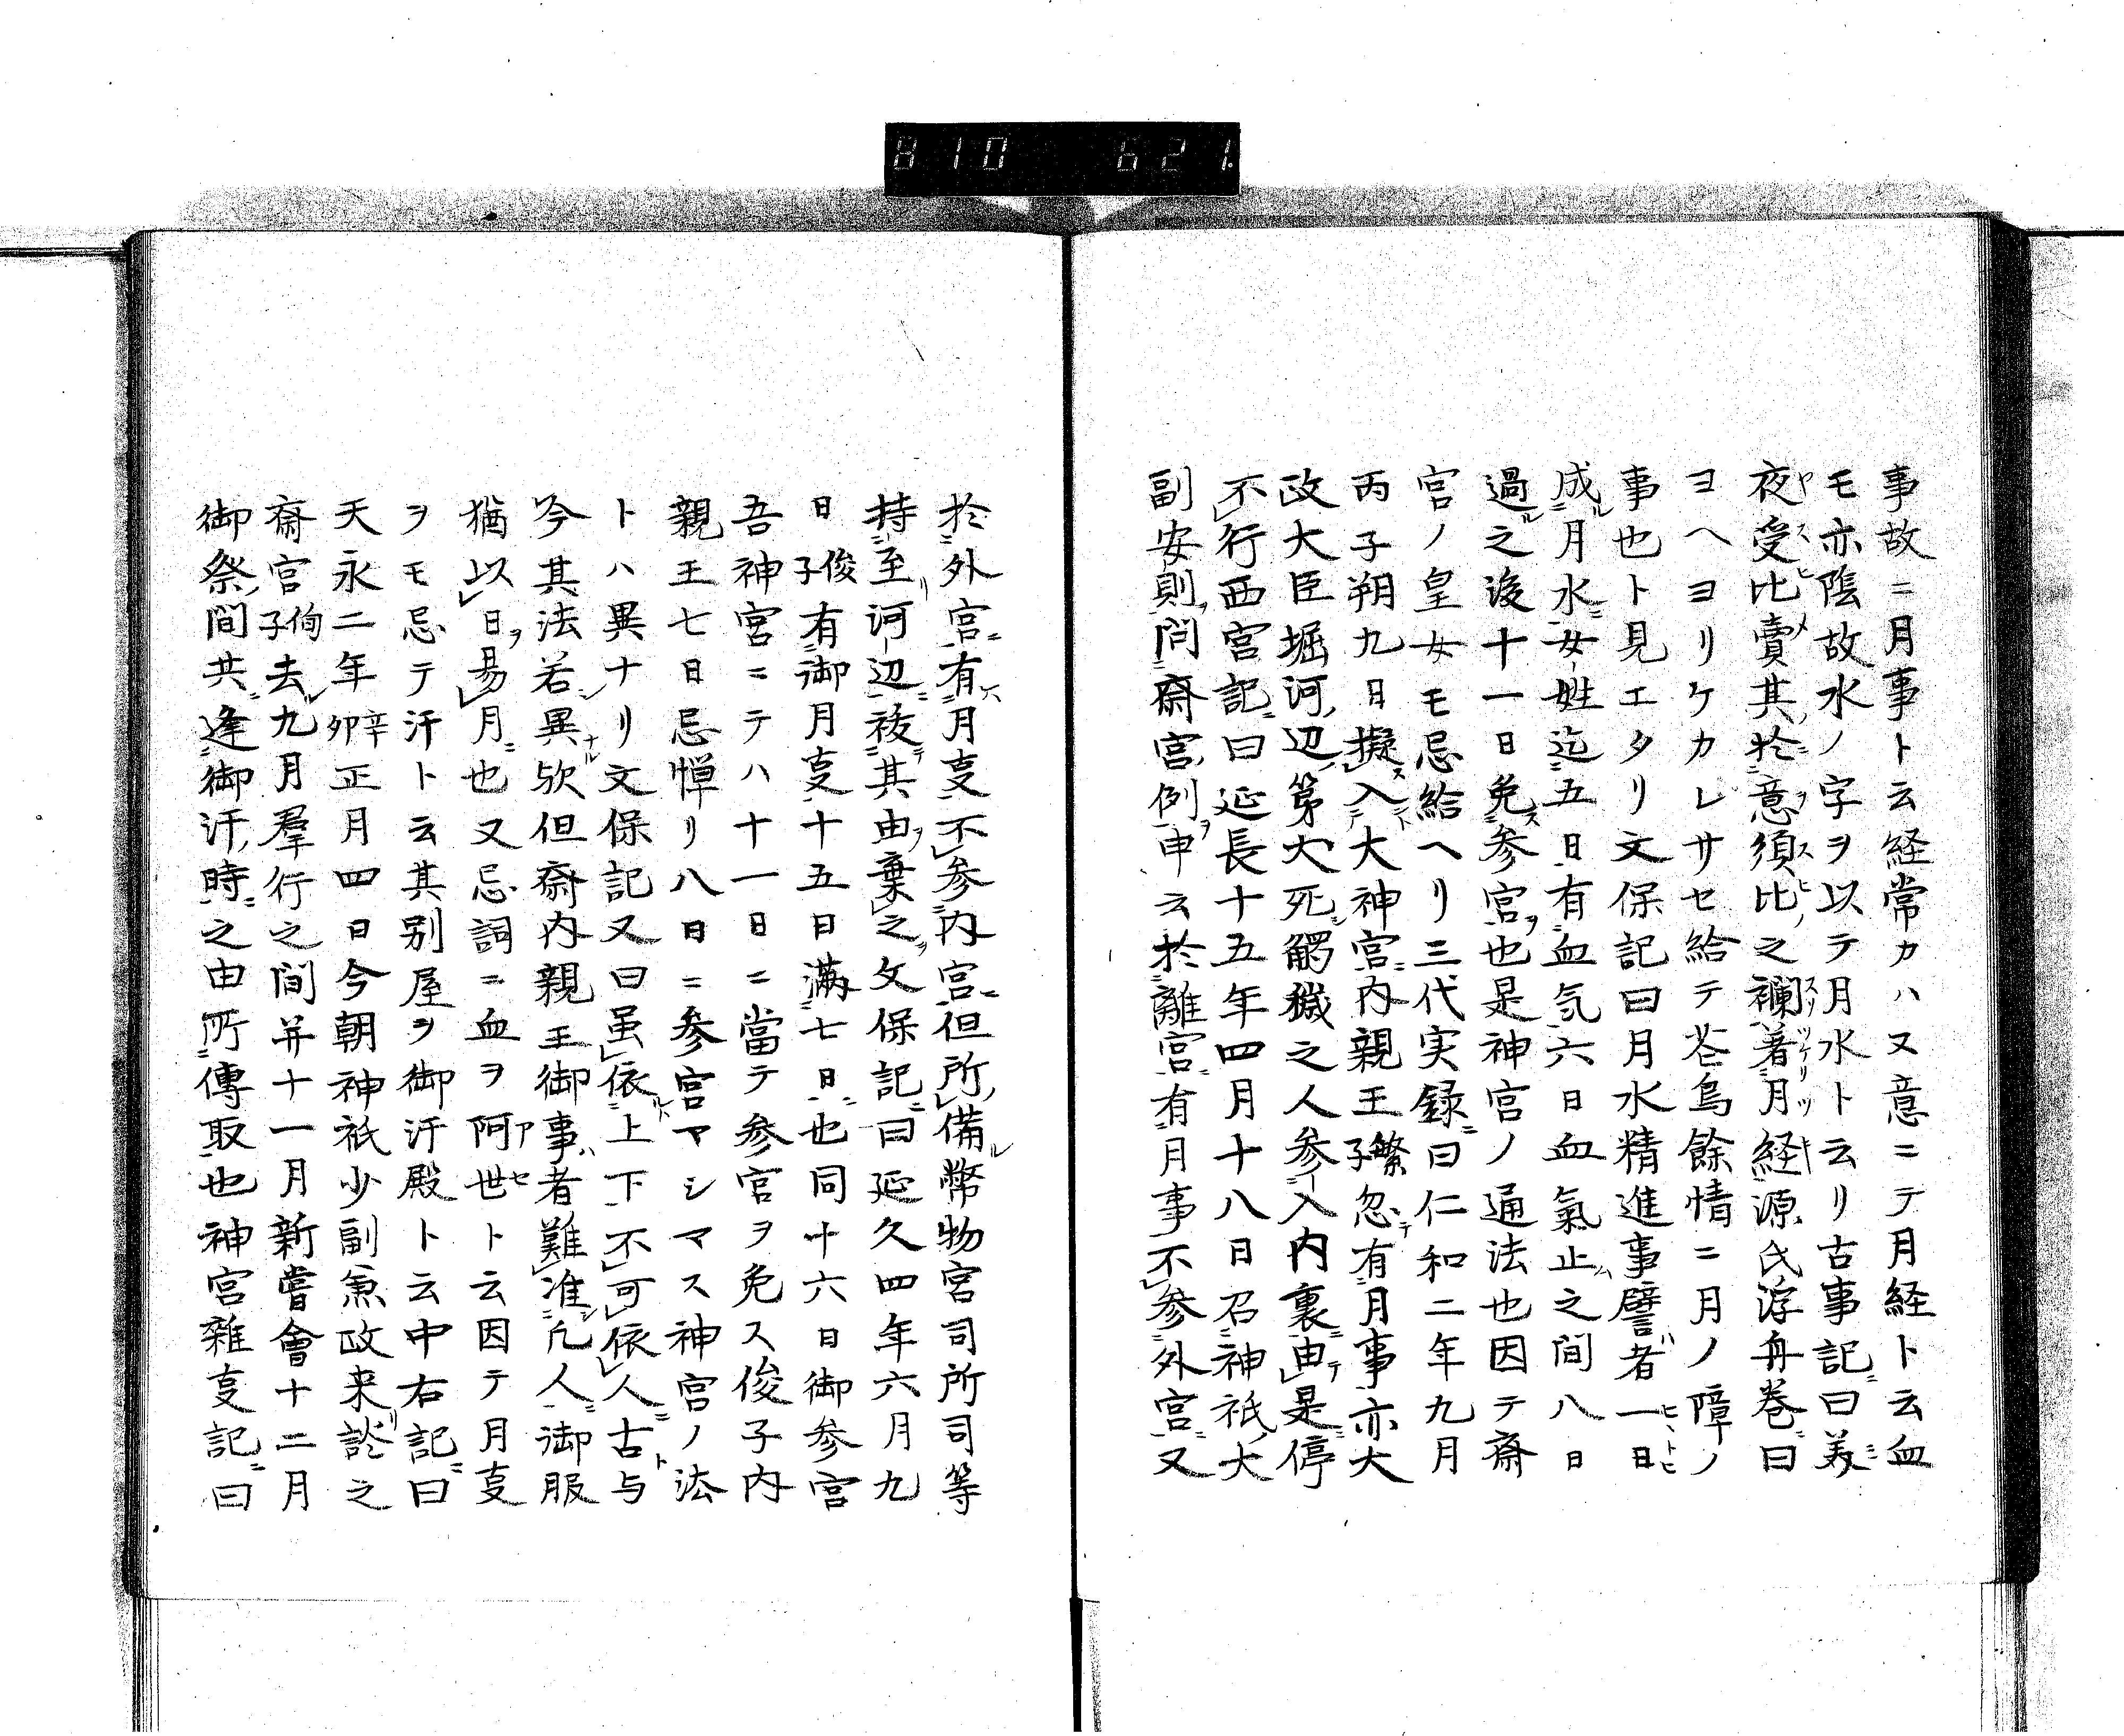 810 621
事故ニ月事ト云経常カハ又意ニテ月経ト云血
モ亦陰故水ノ字ヲ以テ月水ト云リ古事記曰美
夜受比賣其於意須比之襴著月経源氏浮舟巻曰
ヨヘヨリケカレサセ給テ苍烏餘情ニ月ノ障ノ
事也ト見エタリ文保記曰月水精進事譬者一日
成月水女姓迄五日有血気六日血氣止之間八日
過之後十一日免参宮也是神宮ノ通法也因テ齋
宮ノ皇女モ忌給ヘリ三代実録曰仁和二年九月
丙子朔九日擬入大神宮内親王繁子忽有月事亦大
政大臣堀河辺第犬死觸穢之人参入内裏由是停
不行西宮記曰延長十五年四月十八日召神祇大
副安則問齋宮例申云於離宮有月事不参外宮又
於外宮有月叓不参内宮但所備幣物宮司所司等
持至河辺祓其由棄之文保記曰延久四年六月九
日俊子有御月叓十五日満七日也同十六日御参宮
吾神宮ニテハ十一日ニ當テ参宮ヲ免ス俊子内
親王七日忌憚リ八日ニ参宮マシマス神宮ノ法
トハ異ナリ文保記又曰虽依上下不可依人古与
今其法若異欤但齋内親王御事者難准凢人御服
猶以日易月也又忌詞ニ血ヲ阿世ト云因テ月叓
ヲモ忌テ汗ト云其別屋ヲ御汗殿ト云中右記曰
天永二年辛卯正月四日今朝神祇少副兼政来談之
齋宮恂子去九月羣行之间并十一月新嘗會十二月
御祭间共逢御汗時之由所傳取也神宮雜叓記曰